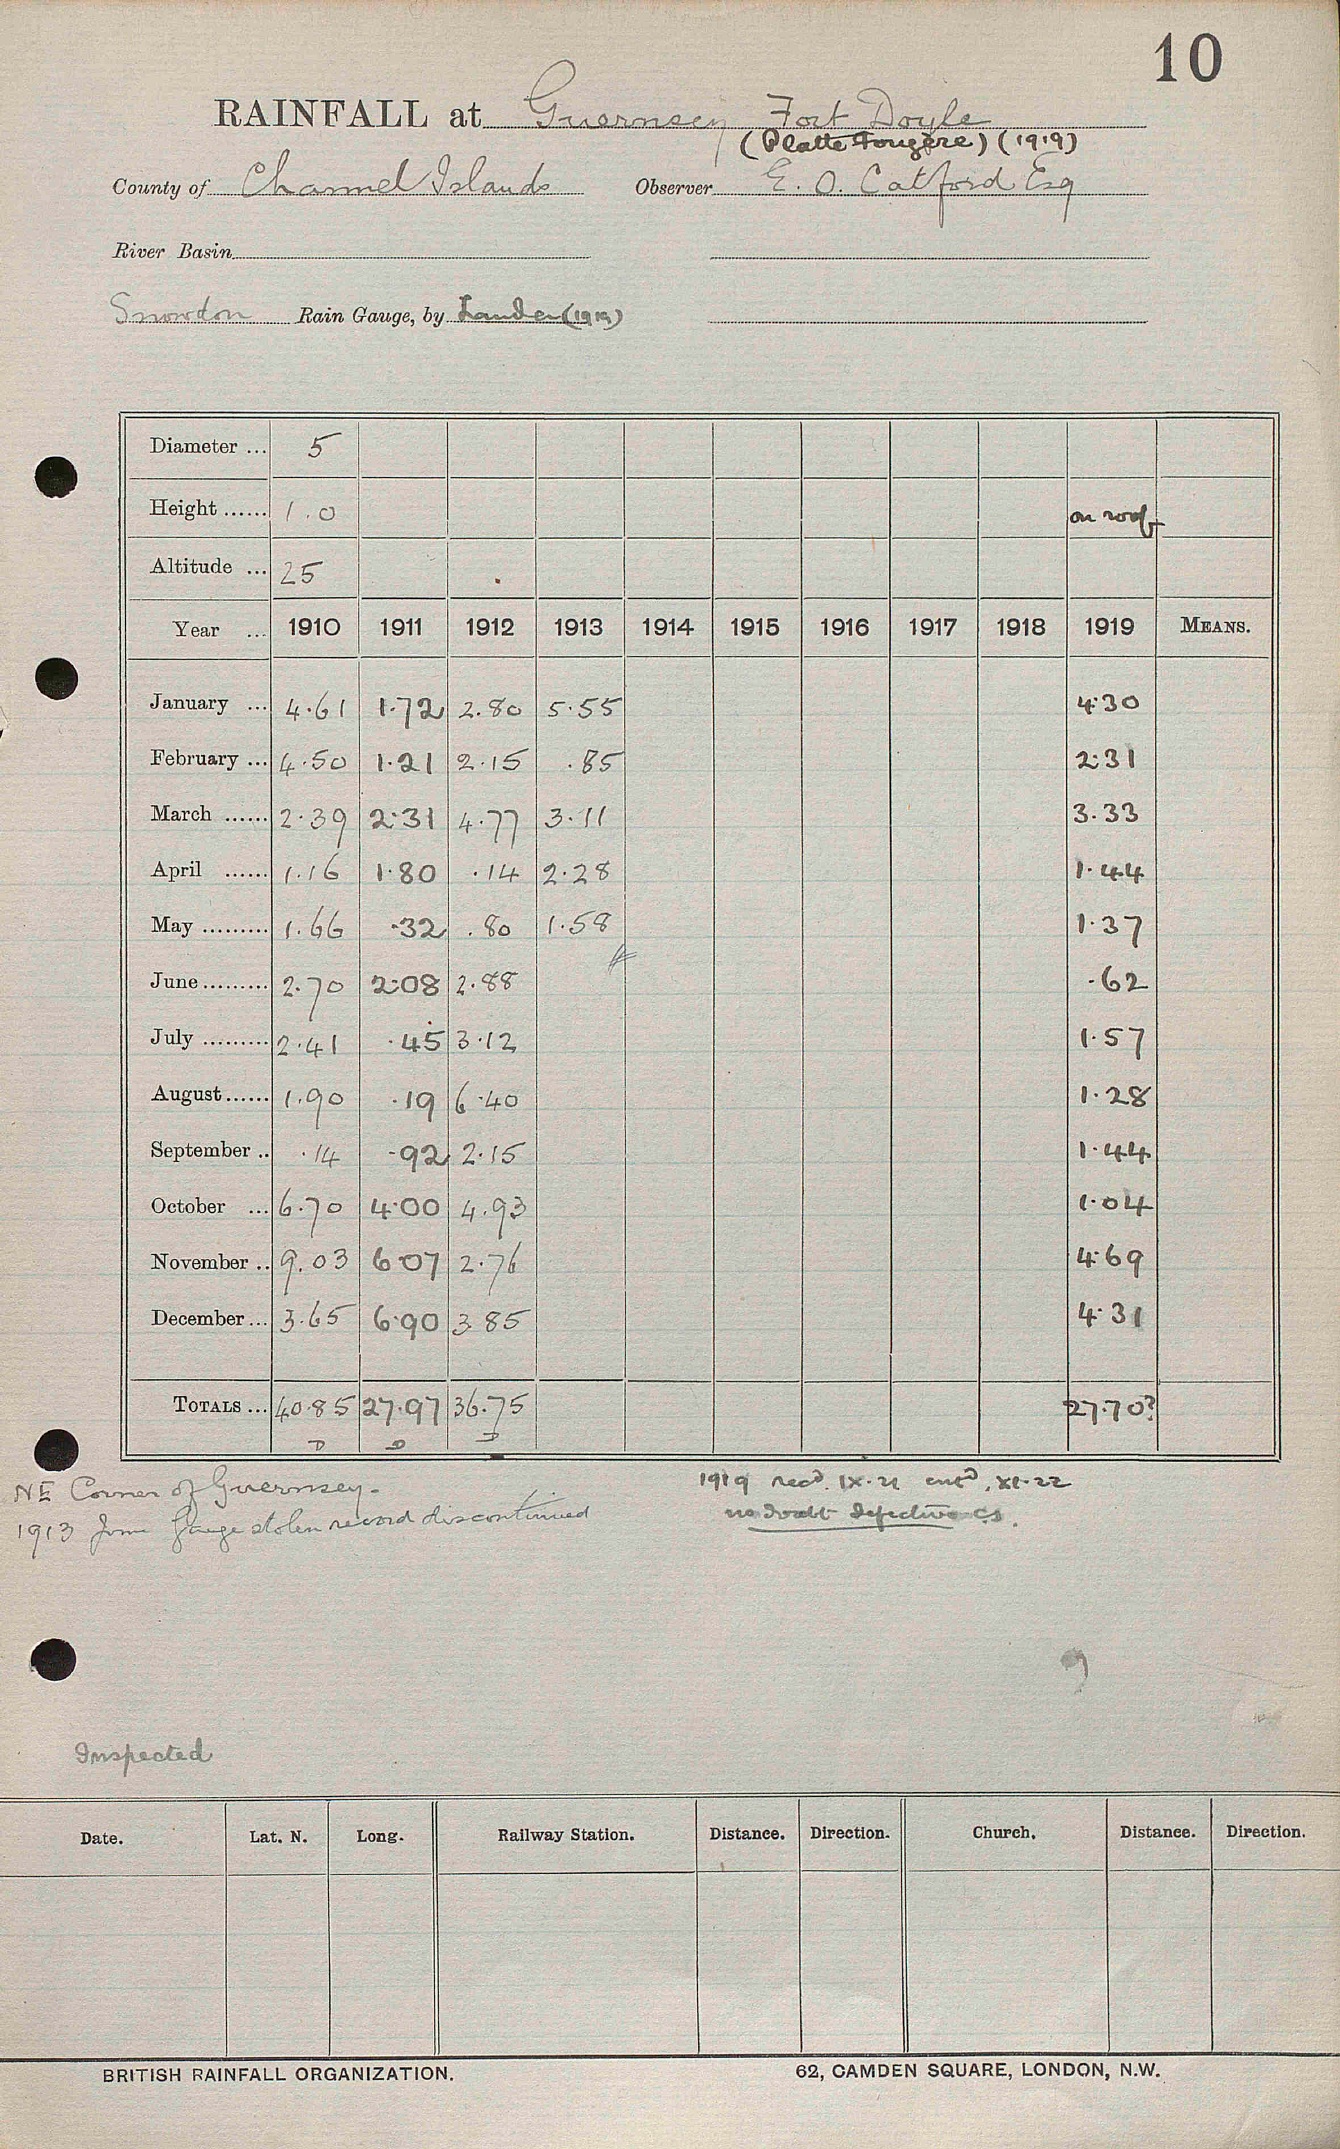 10
RAINFALL at Guernsey Fort Doyle
(Platte Fougère) (1919)
County of Channel Islands Observer E. O. Catford Esq
River Basin
Snowdon Rain Gauge, by Lander (1919)
Diameter ... 5
Height ...... 1.0 on roof
Altitude ... 25
Year ... 1910 1911 1912 1913 1914 1915 1916 1917 1918 1919 MEANS.
January ... 4.61 1.72 2.80 5.55 4.30
February ... 4.50 1.21 2.15 .85 2.31
March ...... 2.39 2.31 4.77 3.11 3.33
April ...... 1.16 1.80 .14 2.28 1.44
May ......... 1.66 .32 .80 1.58 1.37
June ......... 2.70 2.08 2.88 .62
July ......... 2.41 .45 3.12 1.57
August ...... 1.90 .19 6.40 1.28
September .. .14 .92 2.15 1.44
October ... 6.70 4.00 4.93 1.04
November .. 9.03 6.07 2.76 4.69
December ... 3.65 6.90 3.85 4.31
TOTALS ... 40.85 27.97 36.75 27.70?
NE Corner of Guernsey.
1913 June Gauge stolen record discontinued
1919 recd. IX.21 entd. XI.22
no doubt defective CS.
Inspected
Date. Lat. N. Long. Railway Station. Distance. Direction. Church. Distance. Direction.
BRITISH RAINFALL ORGANIZATION. 62, CAMDEN SQUARE, LONDON, N.W.